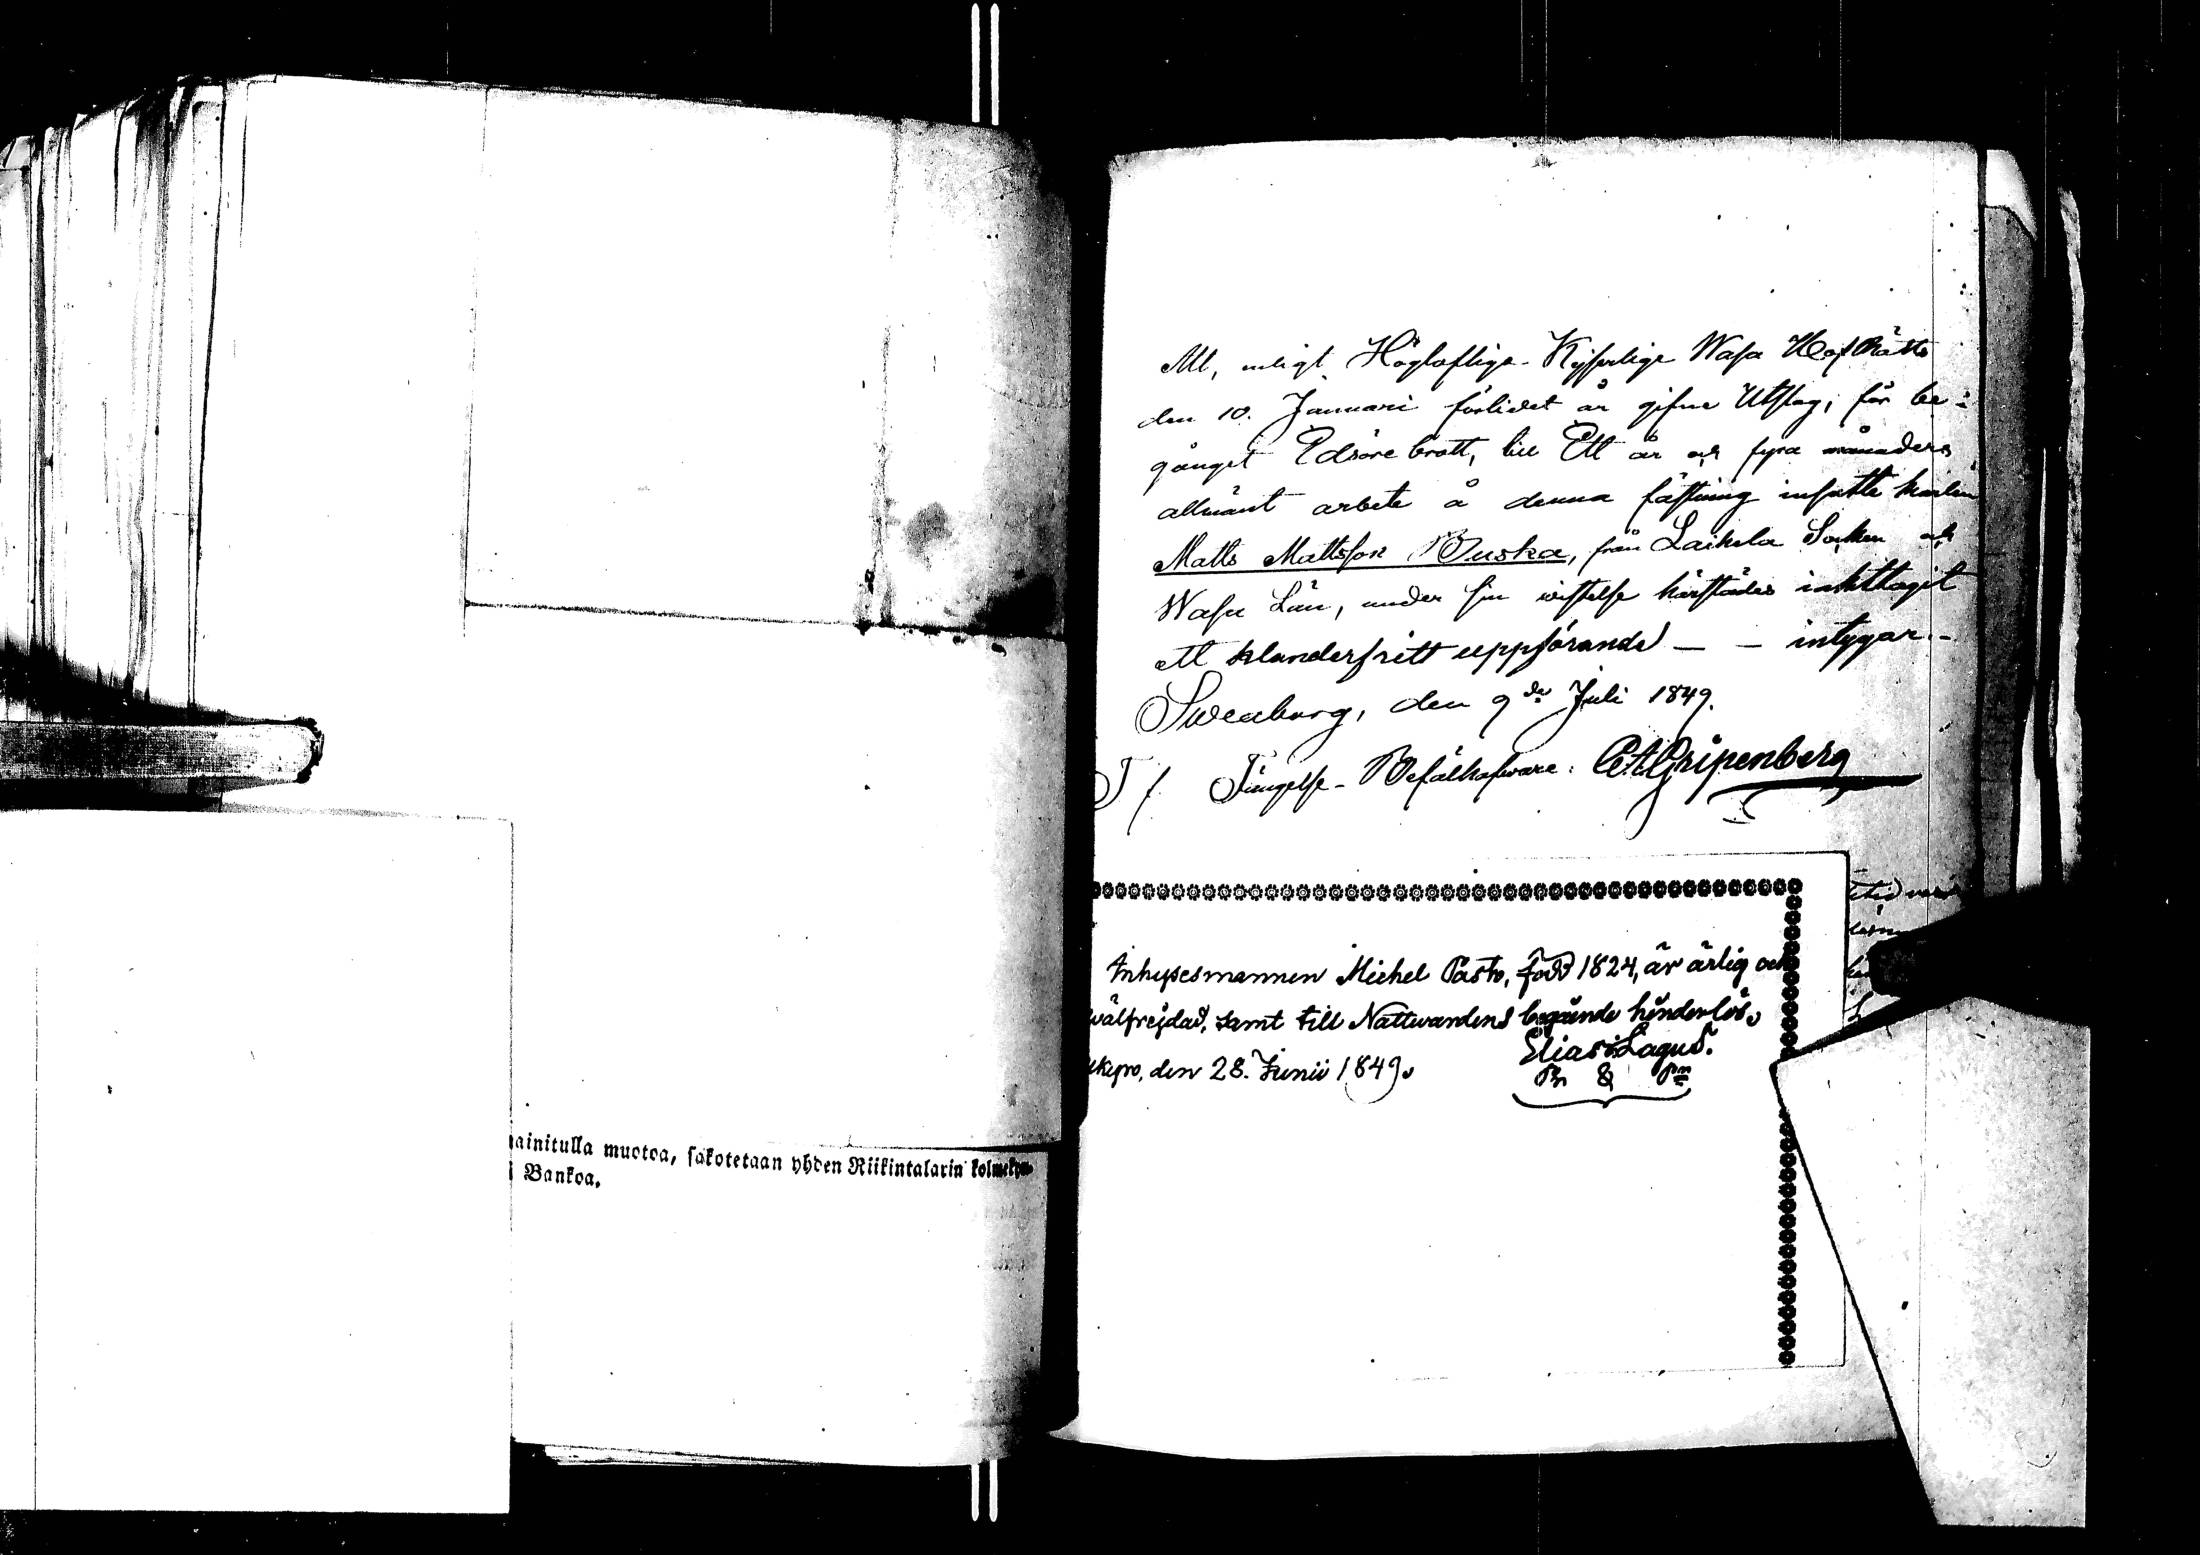 ainitulla muotoa, sakotetaan yhden Riikintalarin
Bankoa.
Att, enligt Högloflige Kejserlige Wasa HofRätts
den 10. Januari förlidet år gifne Utslag, för be-
gånget Edsöre brott, till Ett år och fyra månaders
allmänt arbete å denna fästning insatte karlen
Matts Mattsson Buska, från Laihela Socken och
Wasa Län, under sin wistelse härstädes iakttagit
ett klanderfritt uppförande — — intygar.-
Sweaborg, den 9de Juli 1849.
T f. Fängelse-Befälhafware: Gripenberg
Inhysesmannen Michel Pasto, född 1824, är ärlig och
wälfrejdad, samt till Nattwardens begående hinderlös.
kyro, den 28. Junii 1849.
Elias Lagus.